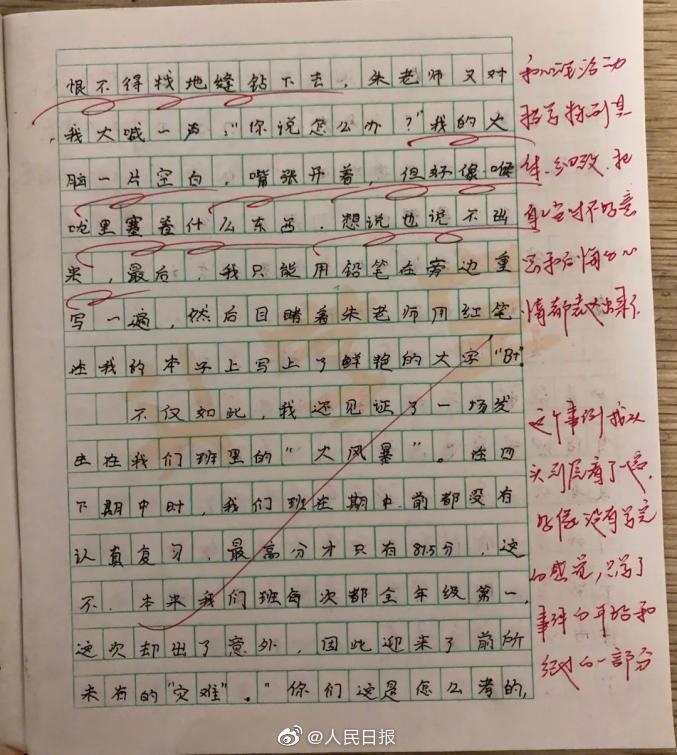 恨不得找地缝钻下去，朱老师又对
我大喊一声："你说怎么办？"我的大
脑一片空白，嘴张开着，但好像喉
咙里塞着什么东西，想说也说不出
来，最后，我只能用铅笔在旁边重
写一遍，然后目睹着朱老师用红笔
在我的本子上写上了鲜艳的大字"B+"
不仅如此，我还见证了一场发
生在我们班里的"大风暴"。在四
下期中时，我们班在期中前都没有
认真复习，最高分才只有87.5分，这
不，本来我们班每次都全年级第一，
这次却出了意外，因此迎来了前所
未有的"灾难"。"你们这是怎么考的，
和心理活动
描写特别具
体、细致，把
自己当时不好意
思和后悔的心
情都表达出来了。
这个事例我从
头到尾看了一遍，
好像没有写完
的感觉，只写了
事情的开始和
经过的一部分
@人民日报